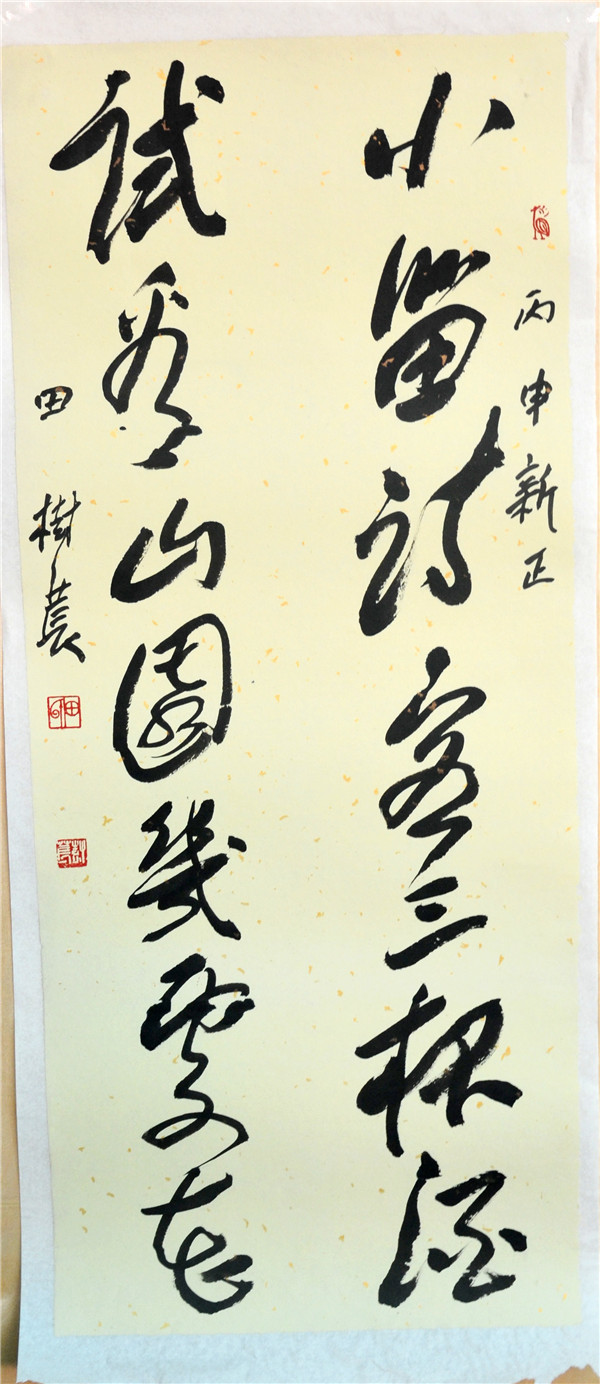 丙申新正
小留詩客三杯酒
試看山園幾處花
田樹萇